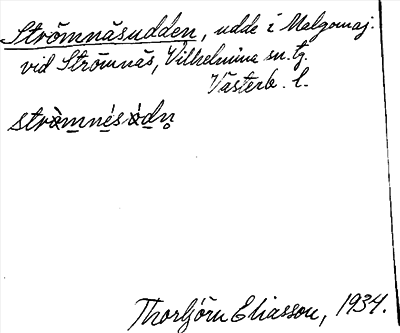 Strömnäsudden, udde i Malgomaj.
vid Strömnäs, Vilhelmina sn. tg.
Västerb. l.
Thorbjörn Eliasson, 1934.